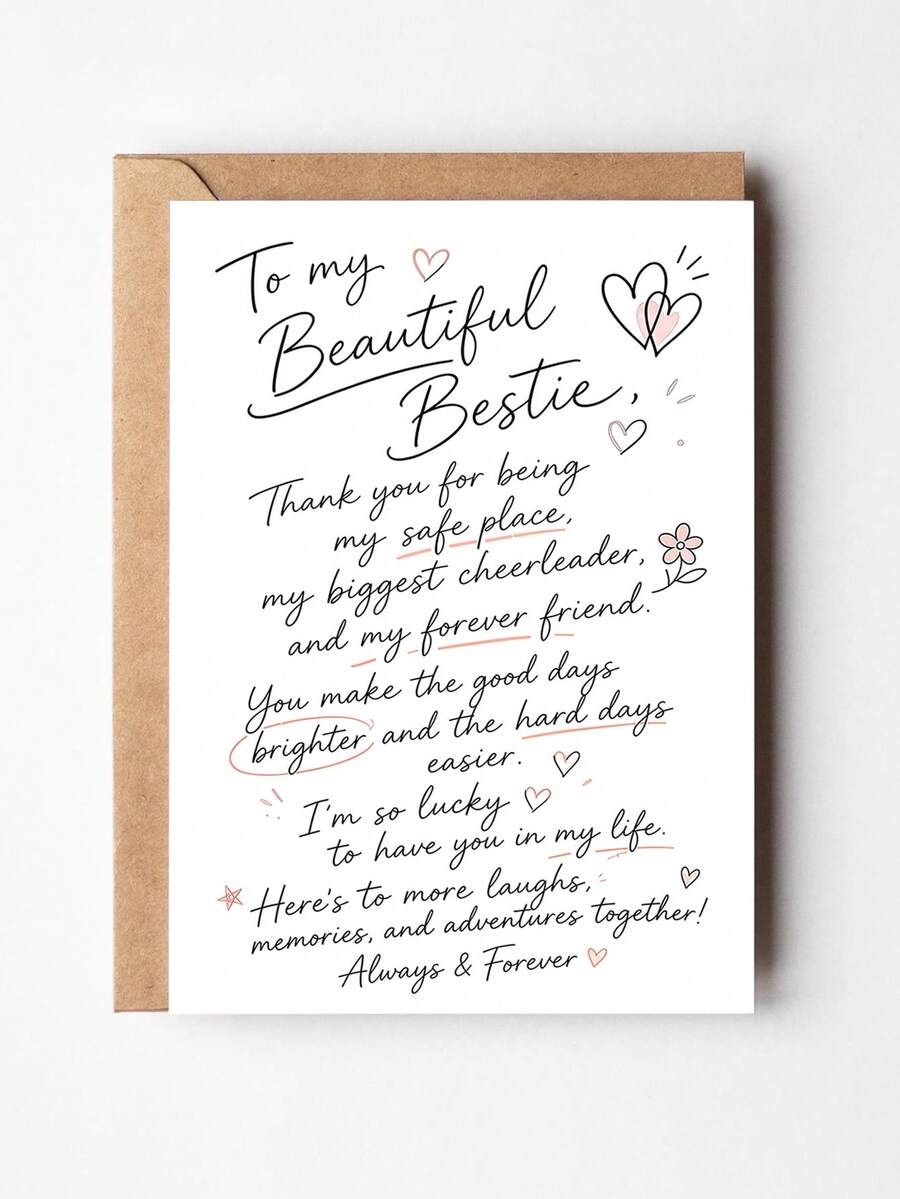 To my
Beautiful
Bestie,
Thank you for being
my safe place,
my biggest cheerleader,
and my forever friend.
You make the good days
brighter and the hard days
easier.
I'm so lucky
to have you in my life.
Here's to more laughs,
memories, and adventures together!
Always & Forever